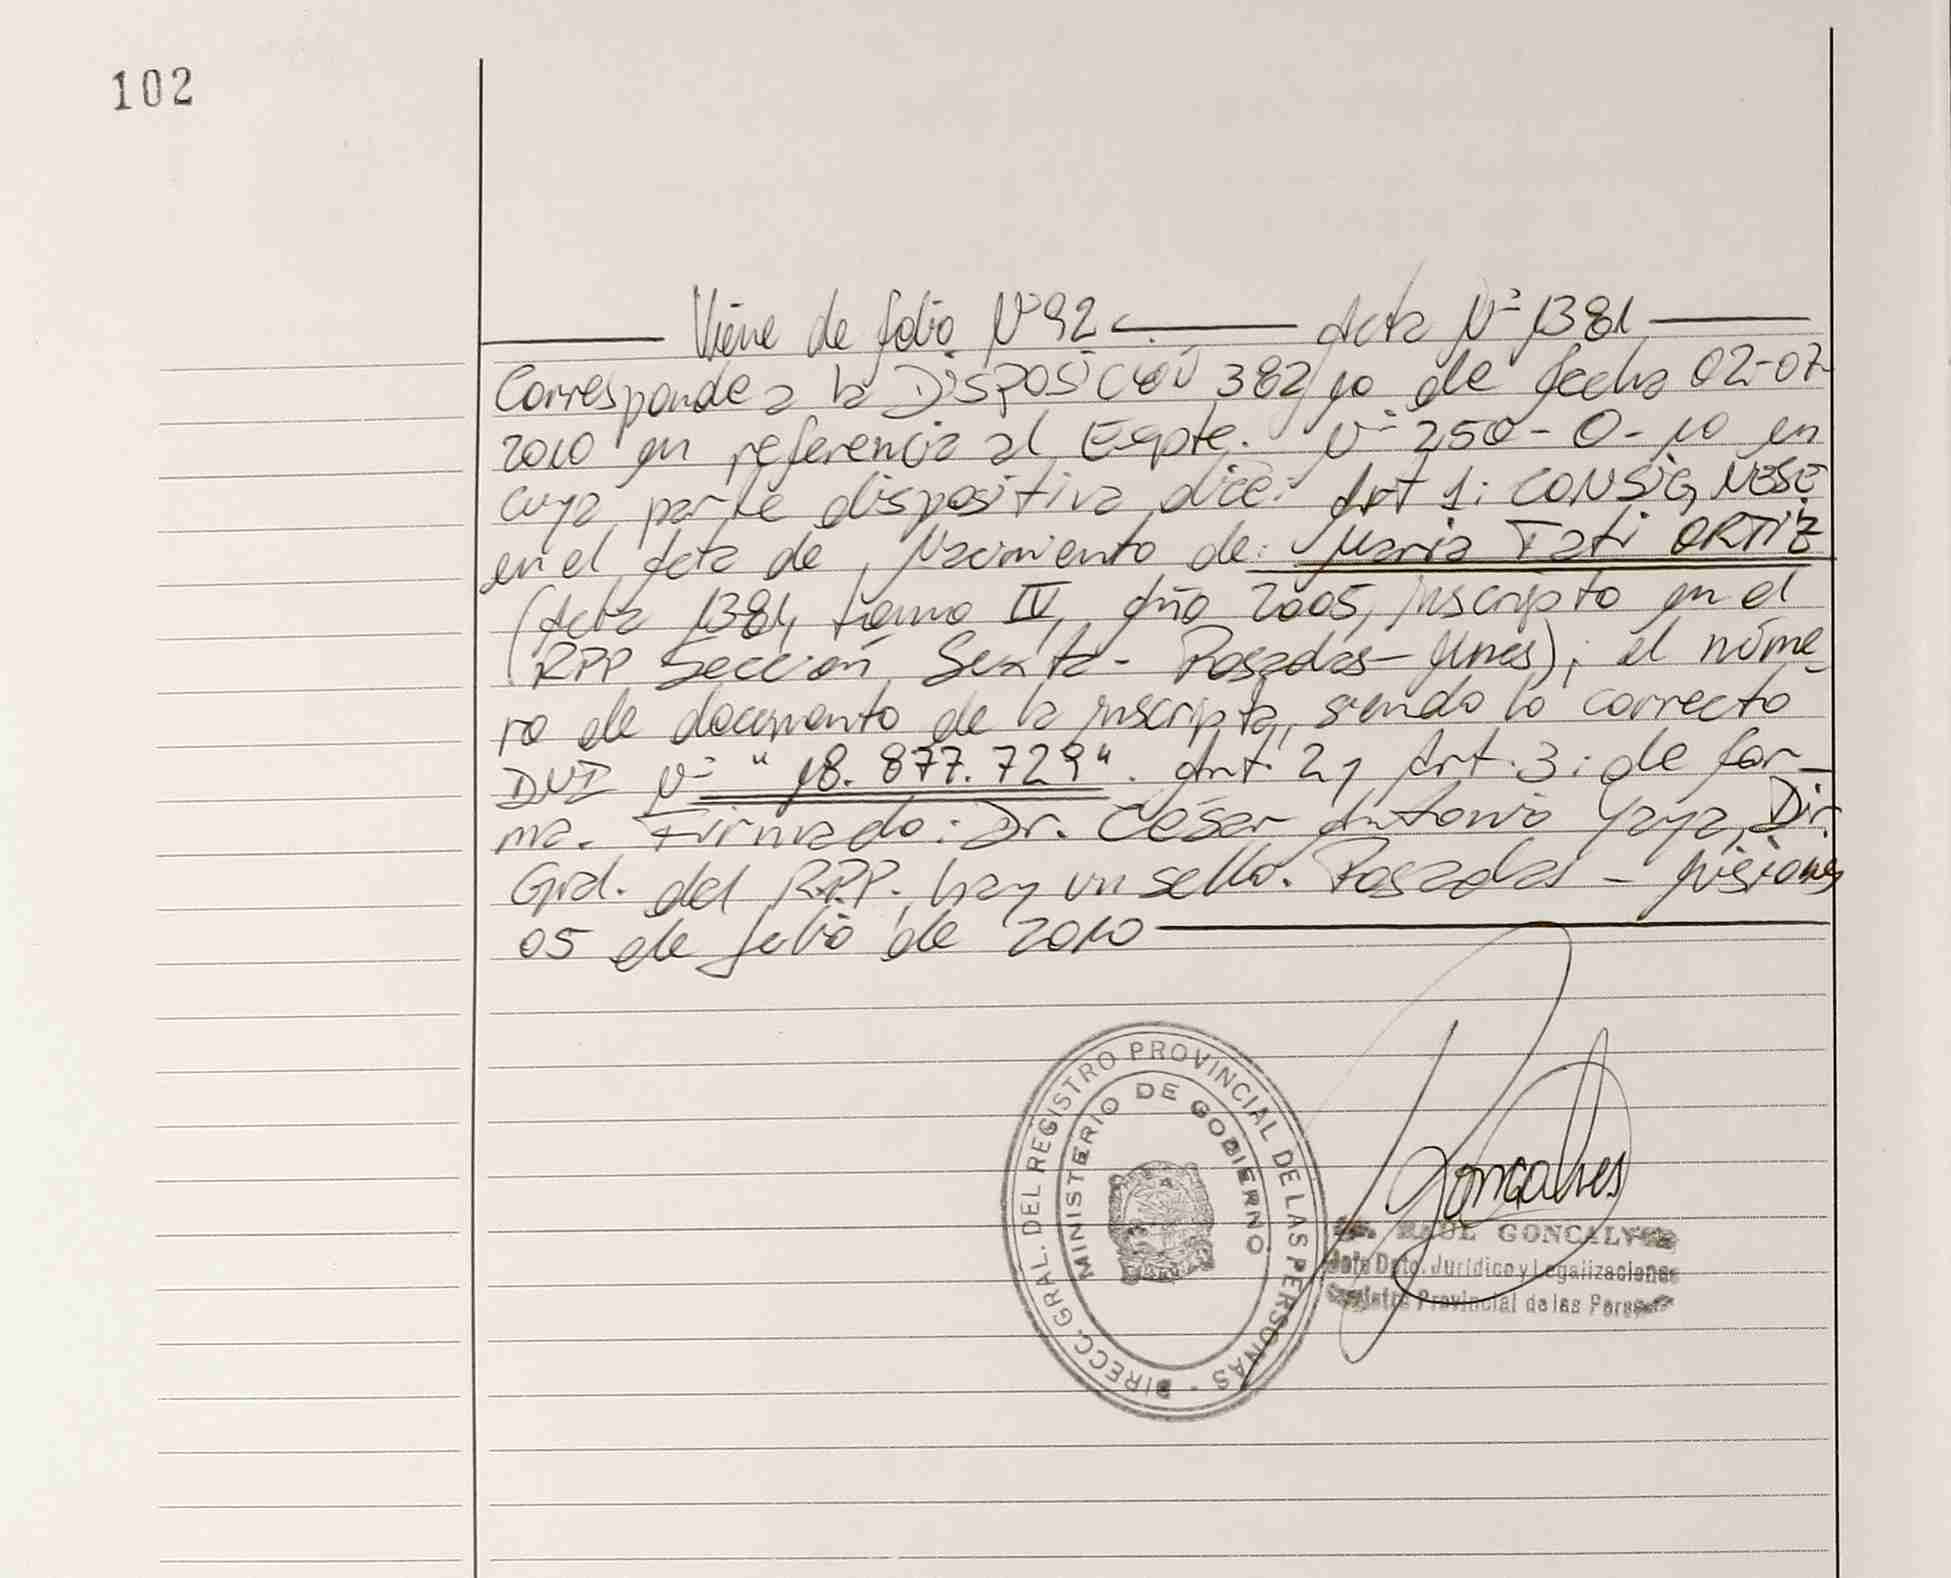 102
Viene de folio Nº 92. Acta Nº 1381
Corresponde a la DISPOSICIÓN 382/10 de fecha 02-07-
2010 en referencia al Expte. Nº 250-O-10 en
cuya parte dispositiva dice: Art 1: CONSIGNESE
en el Acta de Nacimiento de: Maria Tati ORTIZ
(Acta 1381, tomo IV, Año 2005, inscripto en el
RPP Sección Sexta- Posadas-Mnes); el núme-
ro de documento de la inscripta, siendo lo correcto
DNI Nº "18.877.729". Art. 2 y Art. 3: de for-
ma. Firmado: Dr. César Antonio Yaya, Dir.
Gral. del R.P.P. hay un sello. Posadas - Misiones
05 de Julio de 2010
DIRECC. GRAL. DEL REGISTRO PROVINCIAL DE LAS PERSONAS -
MINISTERIO DE GOBIERNO
Goncalves
RAUL GONCALVES
Jefe Dpto. Jurídico y Legalizaciones
Registro Provincial de las Personas